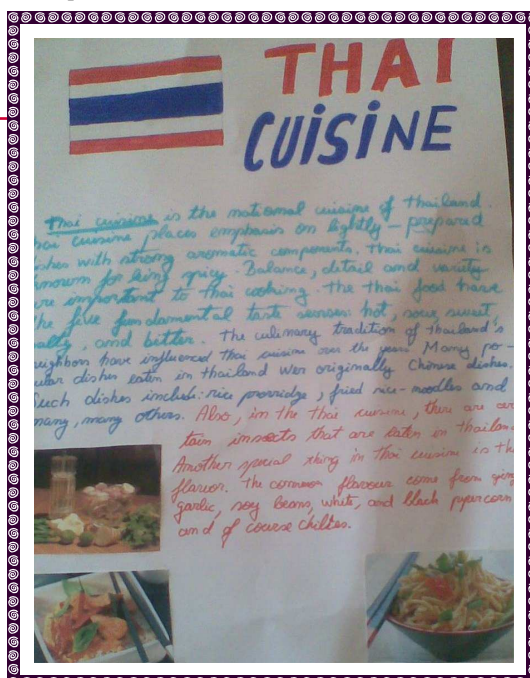 THAI
CUISINE
Thai cuisine is the national cuisine of Thailand.
hai cuisine places emphasis on lightly-prepared
ishes with strong aromatic components. Thai cuisine is
known for being spicy. Balance, detail and varity
are important to thai cooking. The thai food have
the five fundamental taste senses: hot, sour, sweet,
salty, and bitter. The culinary tradition of Thailand's
neighbors have influenced Thai cuisine over the years. Many po-
ular dishes eaten in thailand wer originally Chinese dishes.
Such dishes include: rice porridge, fried rice-noodles and
many, many others. Also, in the thai cuisine, there are cer
tain insects that are eaten in thailan
Another special thing in Thai cuisine is the
flavor. The common flavours come from ging
garlic, soy beans, white, and black pepercorn
and of course chilies.